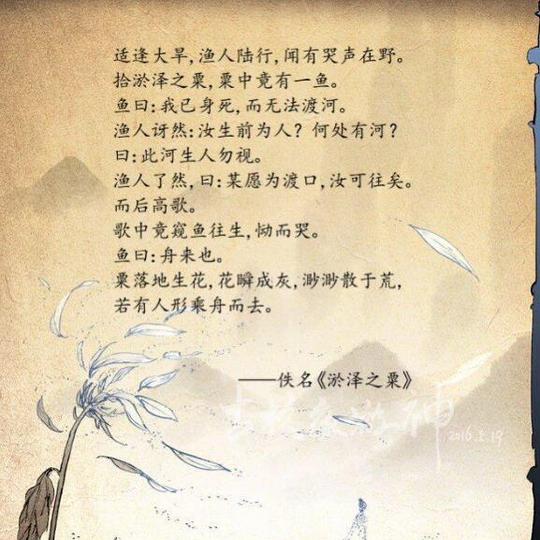 适逢大旱,渔人陆行,闻有哭声在野。
拾淤泽之粟,粟中竟有一鱼。
鱼曰:我已身死,而无法渡河。
渔人讶然:汝生前为人?何处有河?
曰:此河生人勿视。
渔人了然,曰:某愿为渡口,汝可往矣。
而后高歌。
歌中竟窥鱼往生,恸而哭。
鱼曰:舟来也。
粟落地生花,花瞬成灰,渺渺散于荒,
若有人形乘舟而去。
——佚名《淤泽之粟》
2016.2.19